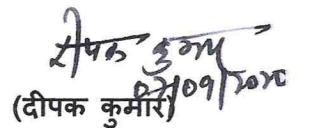 दीपक कुमार
07/09/2020
(दीपक कुमार)